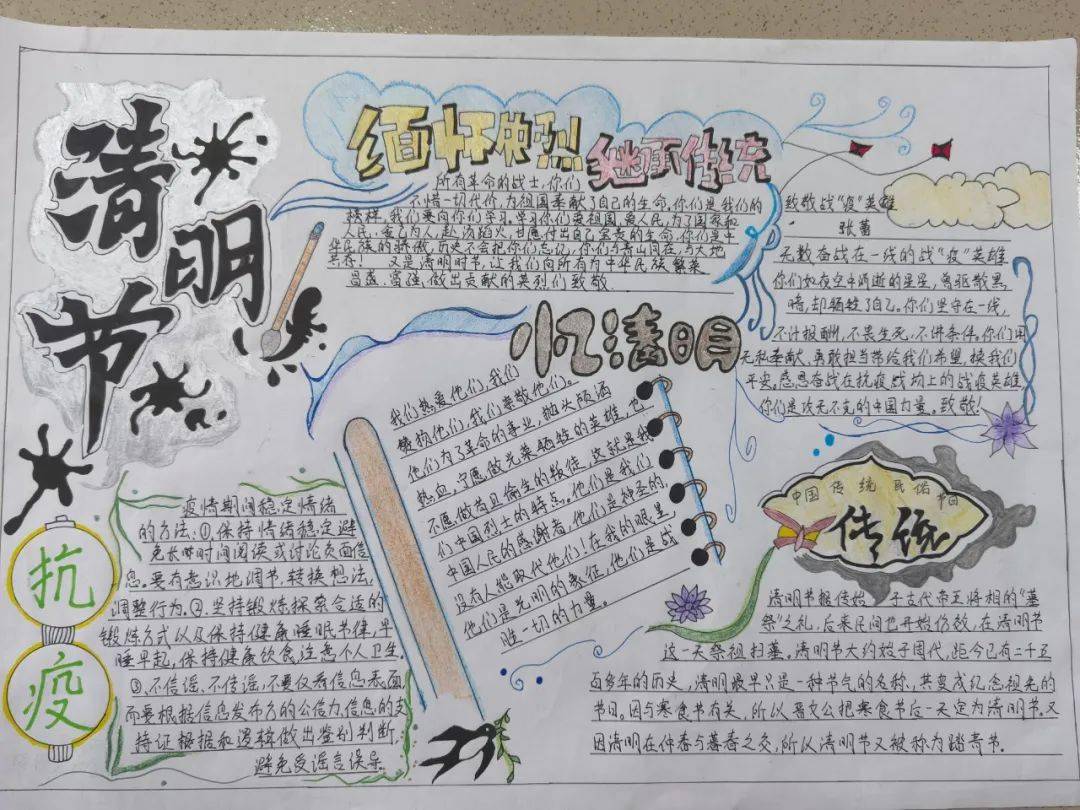 清明节
缅怀先烈 继承传统
所有革命的战士,你们
不惜一切代价,为祖国奉献了自己的生命,你们是我们的
榜样。我们要向你们学习。学习你们爱祖国,爱人民,为了国家和
人民,舍己为人,赴汤蹈火,甘愿付出自己宝贵的生命,你们是中
华民族的骄傲,历史不会把你们忘记,你们与青山同在,与大地
共存! 又是清明时节,让我们向所有为中华民族繁荣
昌盛、富强,做出贡献的英烈们致敬
致敬战"疫"英雄
张蕾
无数奋战在一线的战"疫"英雄
你们如夜空中闪逝的星星,曾驱散黑
暗,却牺牲了自己。你们坚守在一线,
不计报酬,不畏生死,不讲条件。你们用
无私奉献、勇敢担当带给我们希望,换我们
平安。感恩奋战在抗疫战场上的战疫英雄
你们是攻无不克的中国力量。致敬!
忆清明
我们热爱他们,我们
拥抱他们,我们崇敬他们。
他们为了革命的事业,抛头颅洒
热血,宁愿做光荣牺牲的英雄,也
不愿做苟且偷生的叛徒,这就是我
们中国烈士的特点。他们是我们
中国人民的感谢者,他们是神圣的,
没有人想取代他们!在我的眼里
他们是光明的象征,他们是战
胜一切的力量。
抗疫
疫情期间稳定情绪
的方法:①.保持情绪稳定避
免长时间阅读或讨论负面信
息。要有意识地调节,转换想法,
调整行为。②.坚持锻炼探索合适的
锻炼方式以及保持健康睡眠节律,早
睡早起,保持健康饮食,注意个人卫生。
③.不信谣、不传谣,不要仅看信息表面,
而要根据信息发布方的公信力,信息的支
持证根据和逻辑做出鉴别判断,
避免受谣言误导.
中国传统民俗节日
传统
清明节据传始于古代帝王将相的"墓
祭"之礼,后来民间也开始仿效,在清明节
这一天祭祖扫墓。清明节大约始于周代,距今已有二千五
百多年的历史,清明最早只是一种节气的名称,其变成纪念祖先的
节日。因与寒食节有关,所以晋文公把寒食节后一天定为清明节。又
因清明在仲春与暮春之交,所以清明节又被称为踏青节.